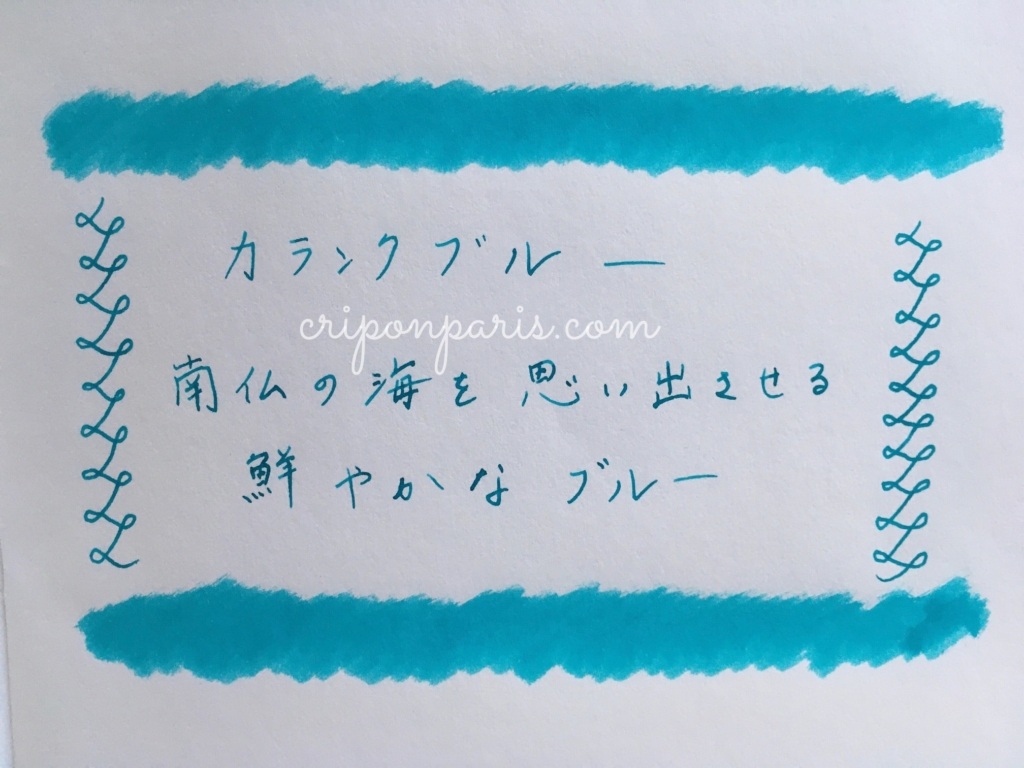 カランクブルー
criponparis.com
南仏の海を思い出させる
鮮やかなブルー